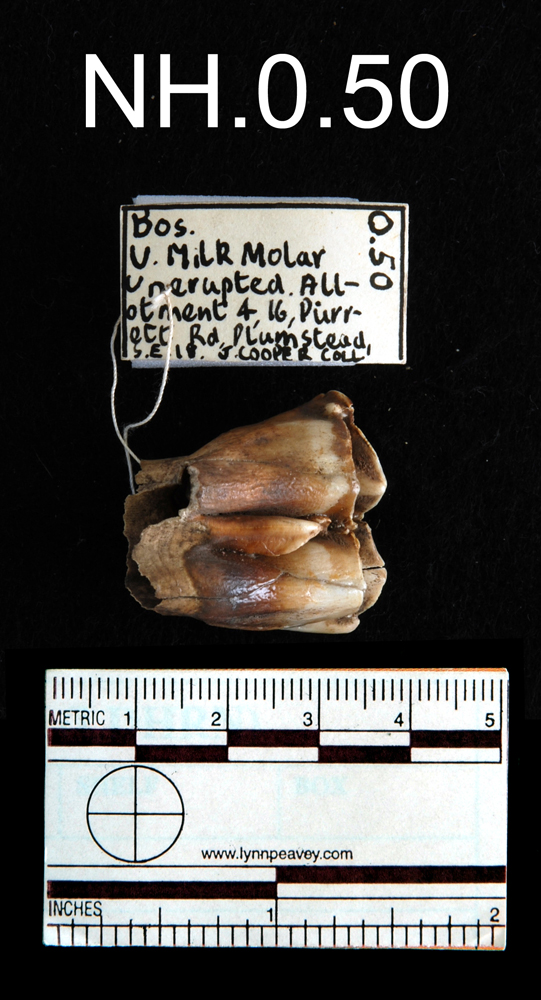 NH.0.50
Bos.
U. Milk Molar
Unerupted. All-
otment 4, 16, Purr-
ett Rd, Plumstead,
S.E. 18. J. COOPER COLL'
0.50
METRIC 1 2 3 4 5
www.lynnpeavey.com
INCHES 1 2